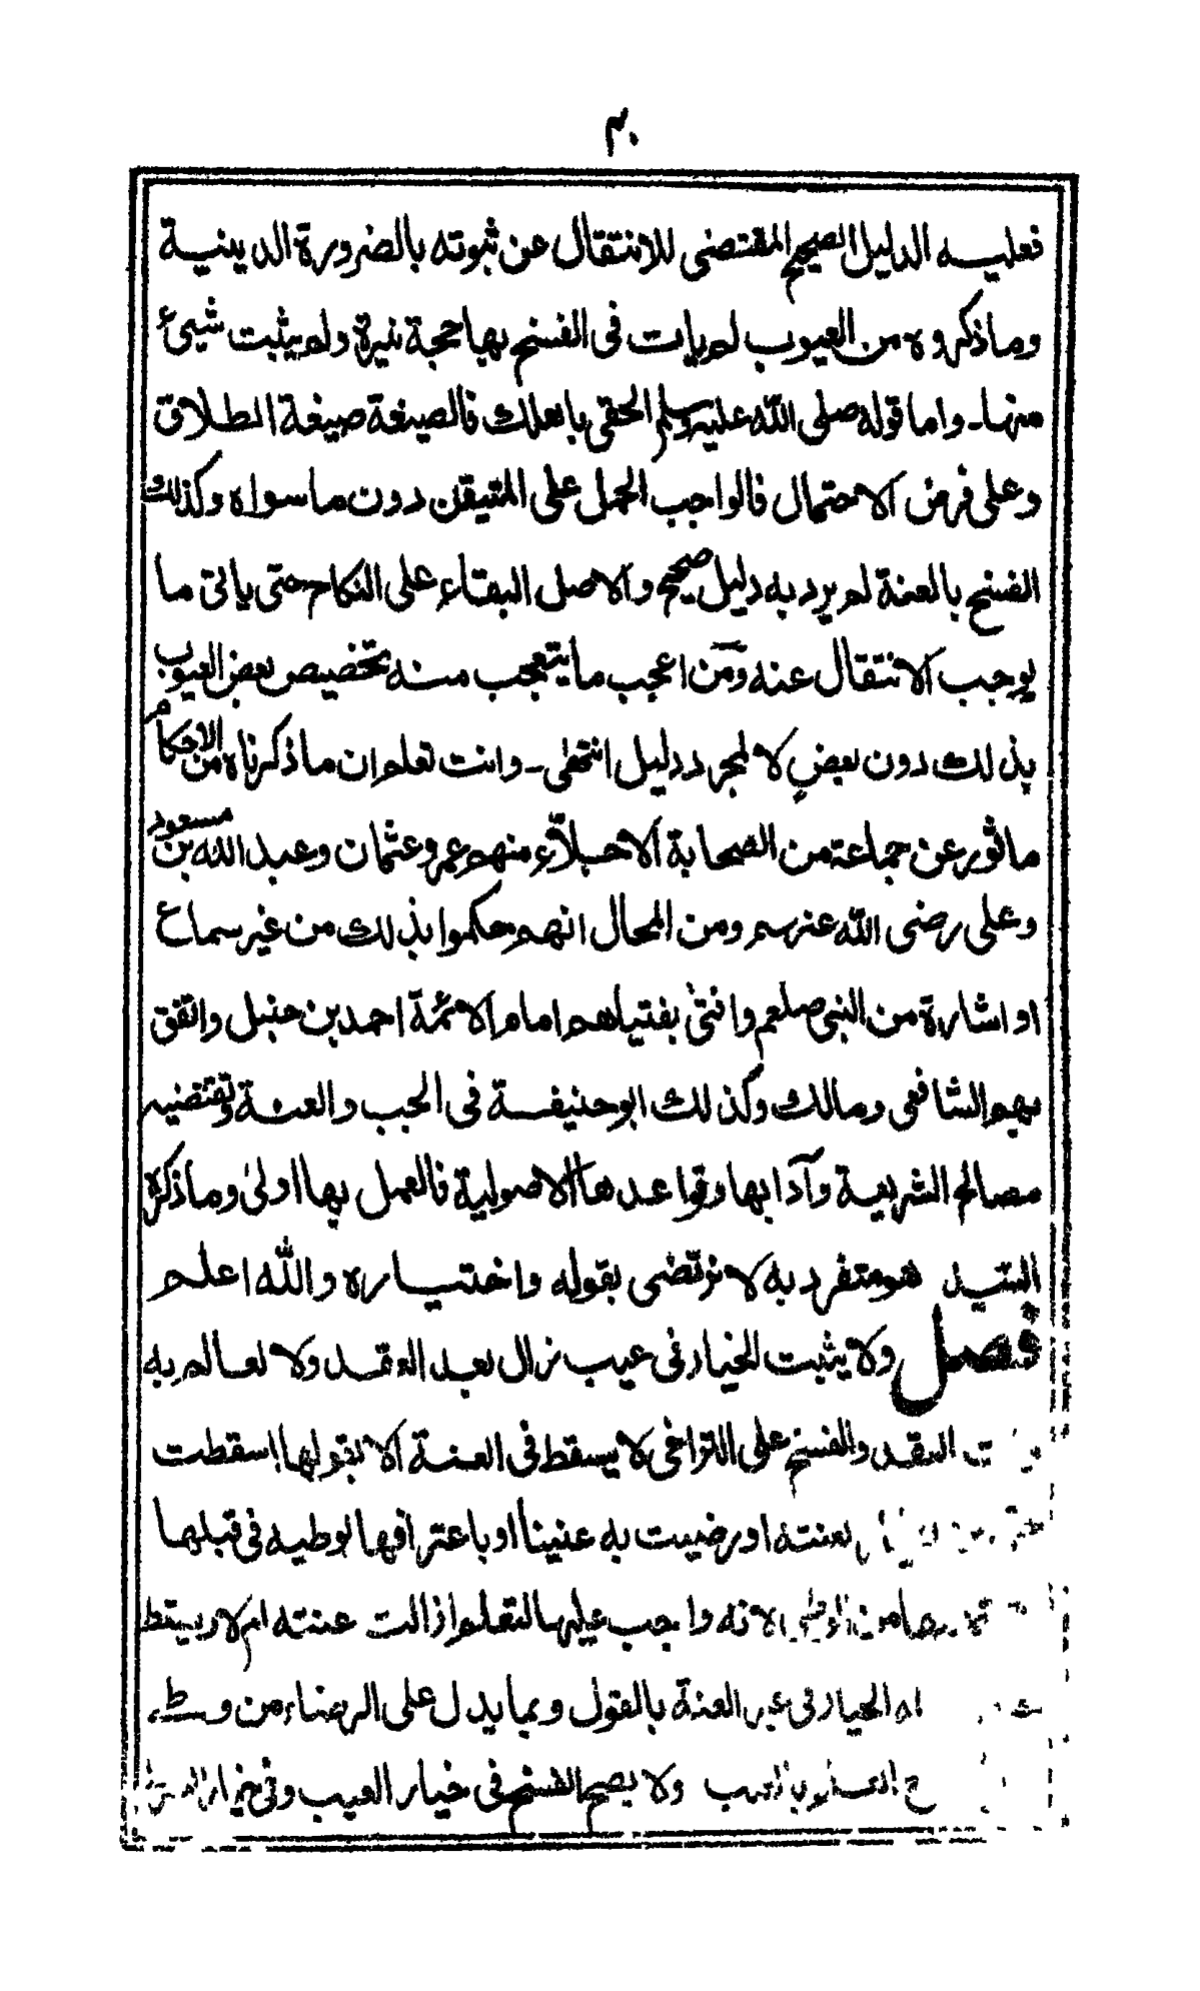 ٣٠
فعليه الدليل الصحيح المقتضى للانتقال عن ثبوته بالضرورة الدينية
وماذكروه من العيوب لم يات فى الفسخ بها حجة نيرة ولم يثبت شيئ
منها۔ واما قوله صلى الله عليه وسلم الحقى باهلك فالصيغة صيغة الطلاق
وعلى فرض الاحتمال فالواجب الحمل على المتيقن دون ماسواه وكذلك
الفسخ بالعنة لم يرد به دليل صحيح والاصل البقاء على النكاح حتى ياتى ما
يوجب الانتقال عنه ومن اعجب مايتعجب منه تخصيص بعض العيوب
بذلك دون بعضٍ لا لمجرد دليل انتهى۔ وانت تعلم ان ماذكرناه من الاحكام
ماثور عن جماعة من الصحابة الاجلاء منهم عمر وعثمان وعبد الله بن مسعود
وعلى رضى الله عنهم ومن المحال انهم حكموا بذلك من غير سماع
او اشارة من النبى صلعم وافتىٰ بفتياهم امام الائمة احمد بن حنبل واتفق
بهم الشافعى ومالك وكذلك ابوحنيفة فى الجب والعنة وتقتضيه
مصالح الشريعة وآدابها وقواعدها الاصولية فالعمل بها اولىٰ وماذكره
السيد هو متفرد به لا نرتضى بقوله واختياره والله اعلم
فصل ولا يثبت الخيار فى عيب زال بعد العقد ولا لعالم به
العقد والفسخ على التراخى لا يسقط فى العنة الا بقولها اسقطت
بعنته او رضيت به عنينا او باعترافها بوطيه فى قبلها
لانه واجب عليها لتعلم ازالت عنته ام لا ويسقط
الخيار فى غير العنة بالقول وبما يدل على الرضاء من وطء
ولا يصح الفسخ فى خيار العيب وفى